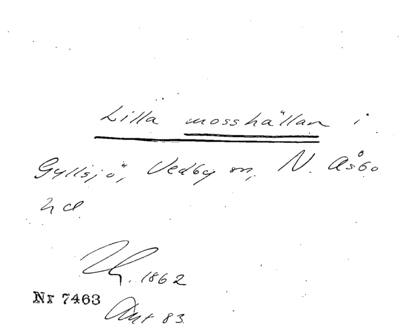 Lilla mosshällan i
Gyllsjö, Vedby sn, N. Åsbo
hd.
1862
Nr 7463
Avt 83.